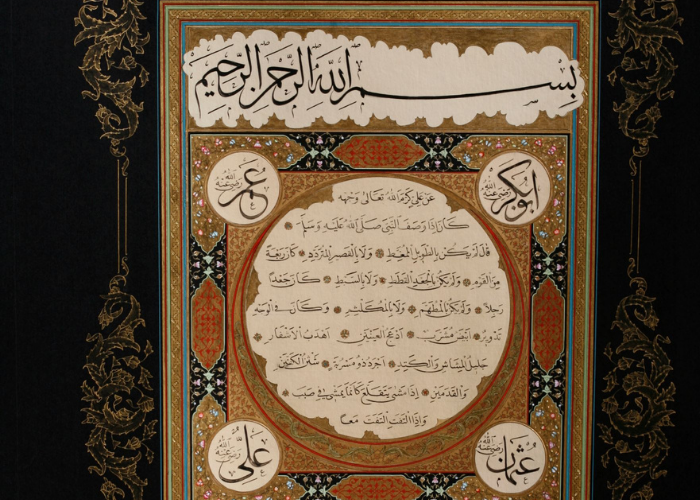 بسم الله الرحمن الرحيم
ابوبكر رضي الله عنه
عمر رضي الله عنه
عن علي كرم الله تعالى وجهه
كان اذا وصف النبي صلى الله عليه وسلم
قال لم يكن بالطويل الممغط ولا بالقصير المتردد كان ربعة
من القوم ولم يكن بالجعد القطط ولا بالسبط كان جعدا
رجلا ولم يكن بالمطهم ولا بالمكلثم وكان في الوجه
تدوير ابيض مشرب ادعج العينين اهدب الاشفار
جليل المشاش والكتد اجرد ذو مسربة شثن الكفين
والقدمين اذا مشى يتقلع كأنما يمشي في صبب
واذا التفت التفت معا
عثمان رضي الله عنه
علي رضي الله عنه